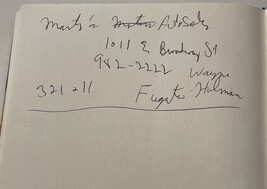 Marty's Auto Sales
1011 E Broadway St
982-2222
Wayne
321 + 11
Fugate Holman